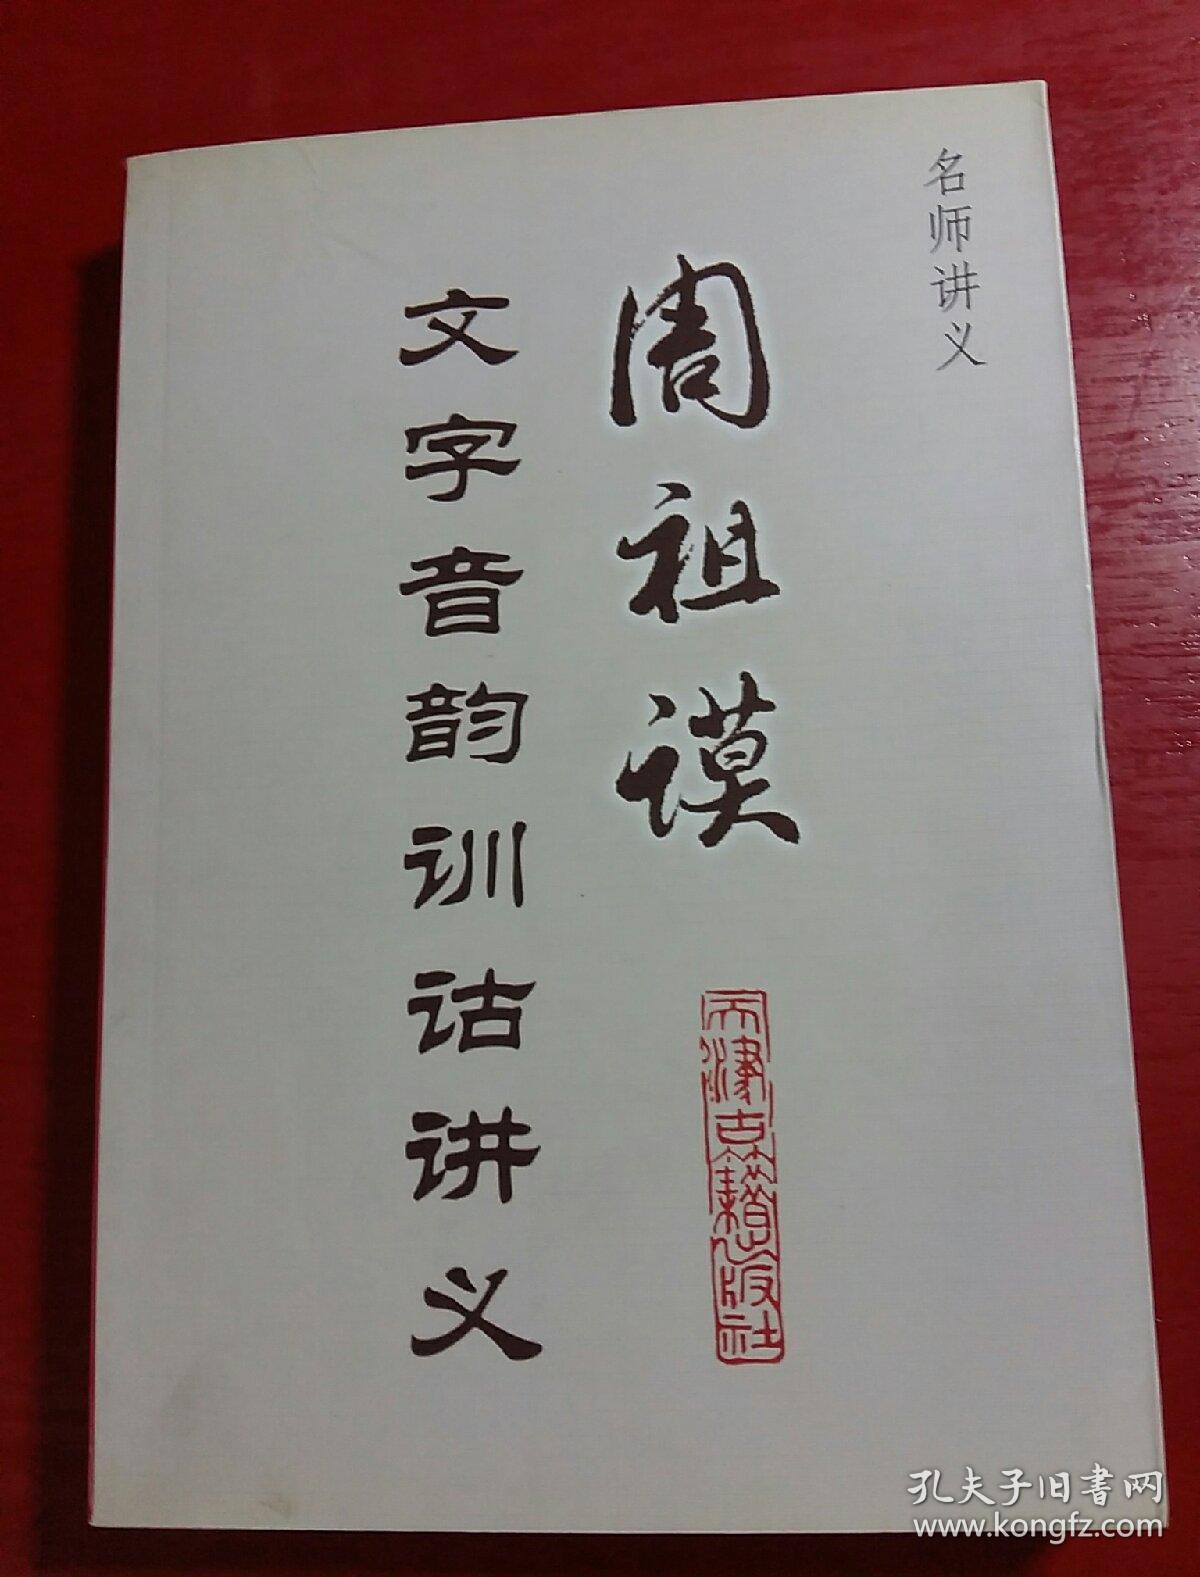 名师讲义
周祖谟
文字音韵训诂讲义
天津古籍出版社
孔夫子旧书网
www.kongfz.com